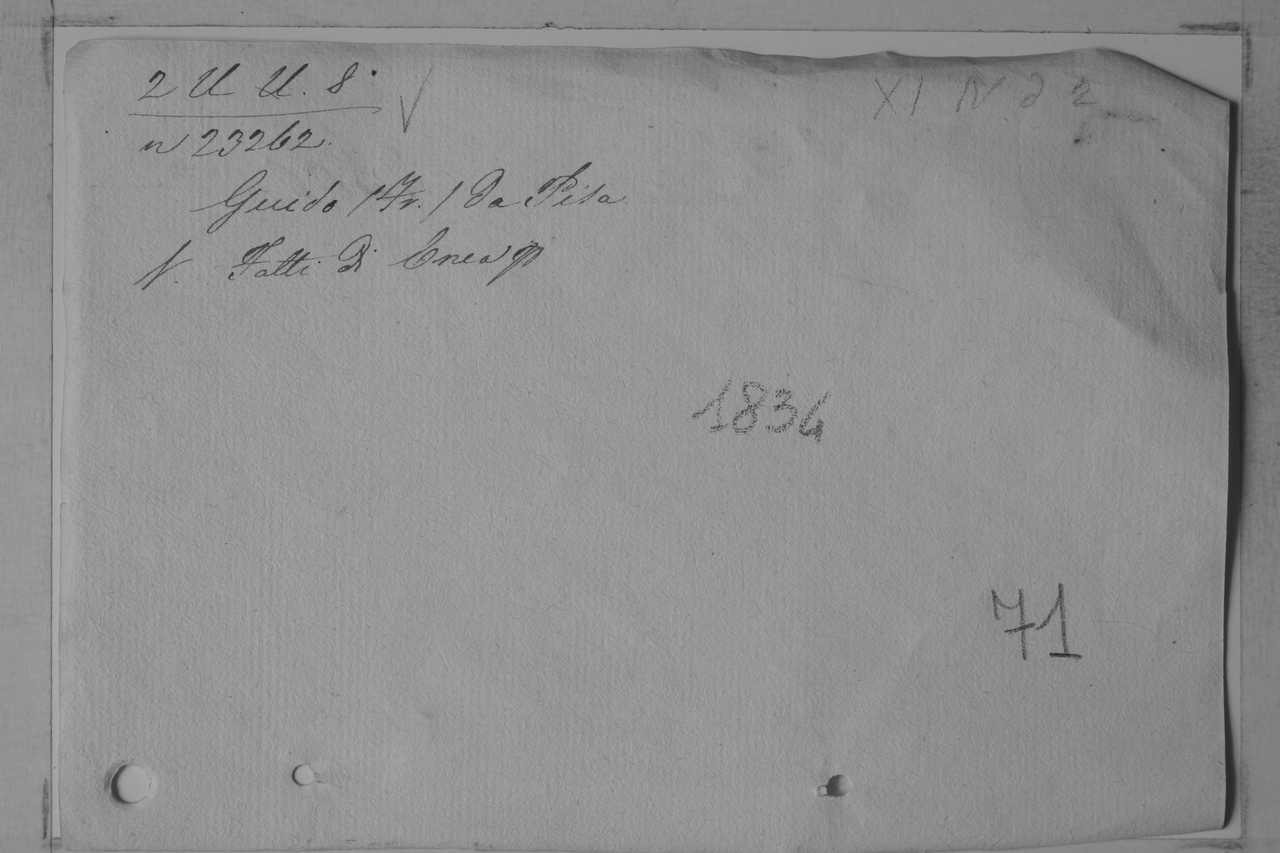 2 U U. 8.
XI N d 2
n 23262.
Guido (Fr.) da Pisa
V. Fatti di Enea
1834
71